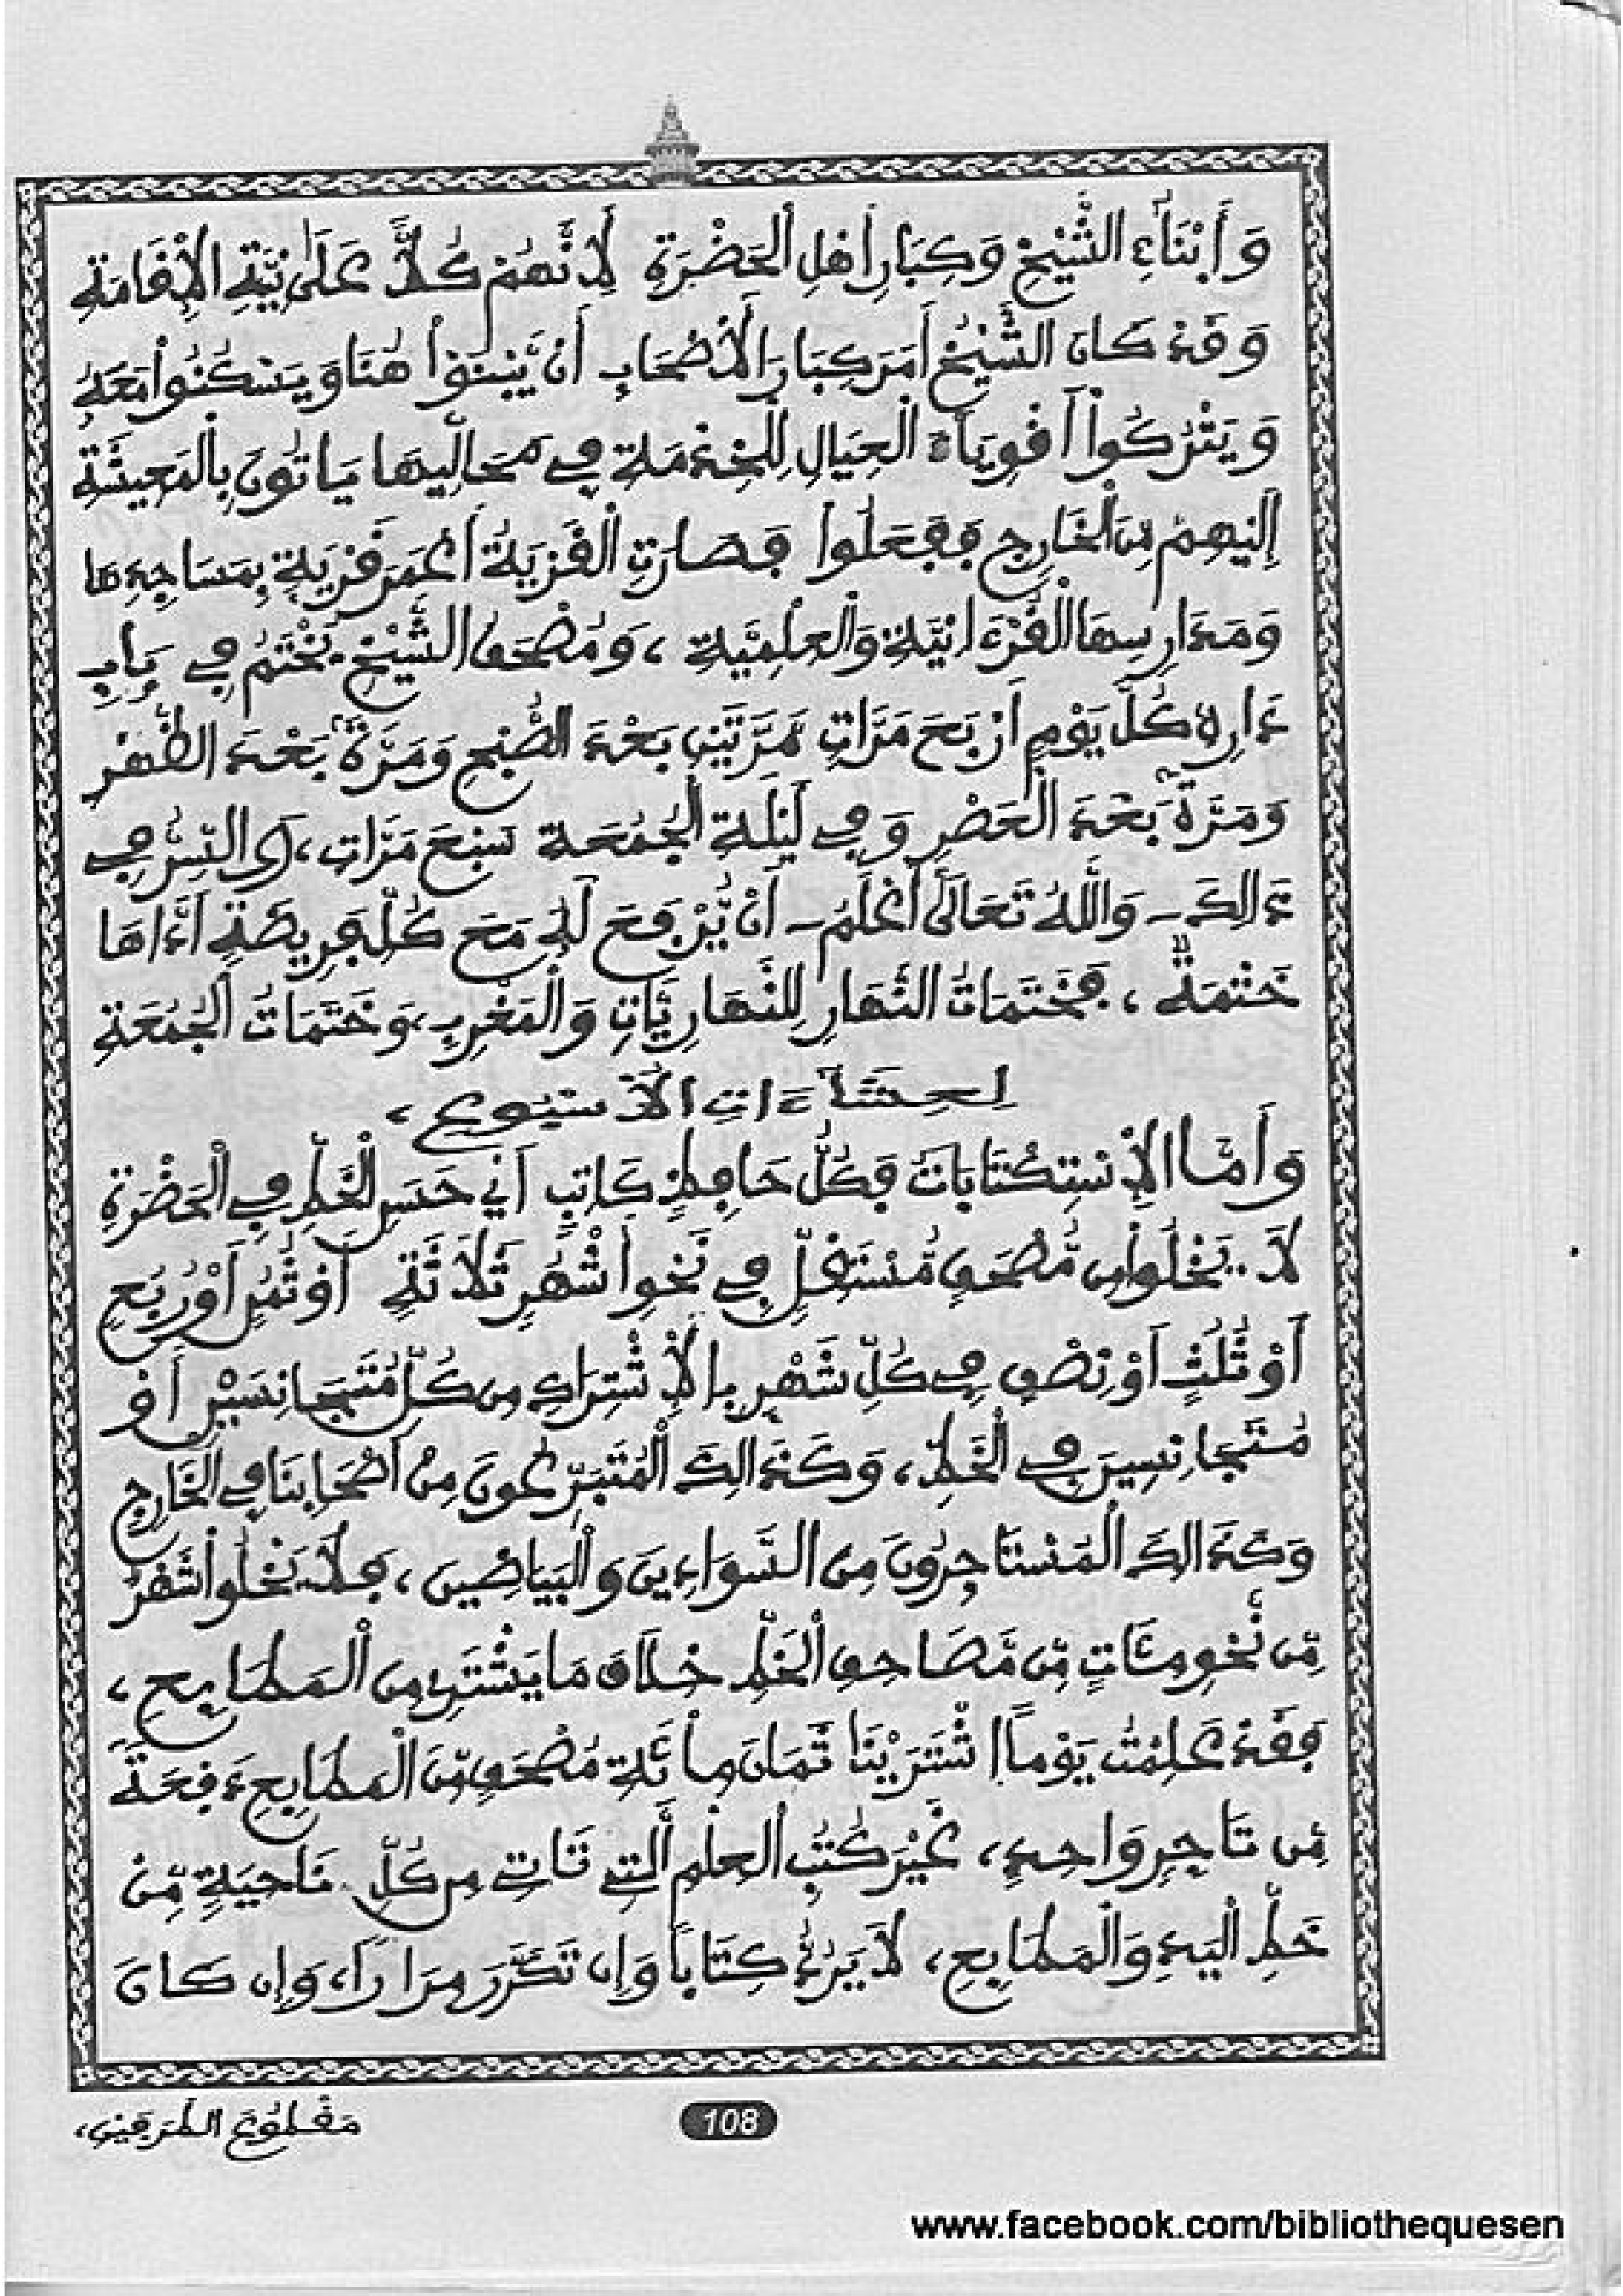 وَأَبْنَاءِ الشَّيْخِ وَكِبَارِ أَهْلِ الْحَضْرَةِ لِأَنَّهُمْ كُلًّا عَلَىٰ نِيَّةِ الْإِقَامَةِ
وَقَدْ كَانَ الشَّيْخُ أَمَرَ كِبَارَ الْأَصْحَابِ أَنْ يَّبْنَوْا هُنَا وَيَسْكُنُوا مَعَهُ
وَيَتْرُكُوا أَقْوِيَاءَ الْعِيَالِ لِلْخِدْمَةِ فِي مَحَالِّيهَا يَاتُونَ بِالْمَعِيشَةِ
إِلَيْهِمْ مِنَ الْخَارِجِ فَفَعَلُوا فَصَارَتِ الْقَرْيَةُ أَعْمَرَ قَرْيَةٍ بِمَسَاجِدِهَا
وَمَدَارِسِهَا الْقُرْءَانِيَّةِ وَالْعِلْمِيَّةِ ، وَمُصْحَفُ الشَّيْخِ يُخْتَمُ فِي بَابِ
دَارِهِ كُلَّ يَوْمٍ أَرْبَعَ مَرَّاتٍ مَرَّتَيْنِ بَعْدَ الصُّبْحِ وَمَرَّةً بَعْدَ الظُّهْرِ
وَمَرَّةً بَعْدَ الْعَصْرِ وَفِي لَيْلَةِ الْجُمُعَةِ سَبْعَ مَرَّاتٍ ، أَرَى السِّرَّ فِي
ذَالِكَ - وَاللَّهُ تَعَالَىٰ أَعْلَمُ - أَنْ يُّرْفَعَ لَهُ مَعَ كُلِّ فَرِيضَةٍ أَدَّاهَا
خَتْمَةٌ ، فَخَتَمَاتُ النَّهَارِ لِلنَّهَارِيَّاتِ وَالْمَغْرِبِ ، وَخَتَمَاتُ الْجُمُعَةِ
لِعِشَاءَاتِ الْأُسْبُوعِ ،
وَأَمَّا الْإِسْتِكْتَابَاتُ فَكُلُّ حَافِظٍ كَاتِبٍ أَيْ حَسَنِ الْخَطِّ فِي الْحَضْرَةِ
لَا يَخْلُوا مِن مُّصْحَفٍ مُّسْتَقِلٍّ فِي نَحْوِ أَشْهُرٍ ثَلَاثَةٍ أَوْ ثُمُنٍ أَوْ رُبُعٍ
أَوْ ثُلُثٍ أَوْ نِصْفٍ فِي كُلِّ شَهْرٍ بِالْإِشْتِرَاكِ مِن كُلِّ مُتَجَانِسَيْنِ أَوْ
مُتَجَانِسِينَ فِي الْخَطِّ ، وَكَذَالِكَ الْمُتَبَرِّعُونَ مِنْ أَصْحَابِنَا فِي الْخَارِجِ
وَكَذَالِكَ الْمُسْتَاجِرُونَ مِنَ السَّوَادِينَ وَالْبَيَاضِينَ ، فَلَا يَخْلُوا شَهْرٌ
مِّن نَّحْوِ مِئَاتٍ مِّن مَّصَاحِفِ الْخَطِّ خِلَافَ مَا يَشْتَرِي مِنَ الْمَطَابِعِ ،
فَقَدْ عَلِمْتُ يَوْمًا اشْتَرَيْنَا ثَمَانَ مِائَةِ مُصْحَفٍ مِّنَ الْمَطَابِعِ دَفْعَةً
مِّن تَاجِرٍ وَاحِدٍ ، غَيْرَ كُتُبِ الْعِلْمِ الَّتِي تَاتِي مِن كُلِّ نَاحِيَةٍ مِّنْ
خَطِّ الْيَدِ وَالْمَطَابِعِ ، لَا يَرُدُّ كِتَابًا وَإِن تَكَرَّرَ مِرَارًا ، وَإِن كَانَ
مَقْطُوعَ الطَّرَفَيْنِ ،
108
www.facebook.com/bibliothequesen